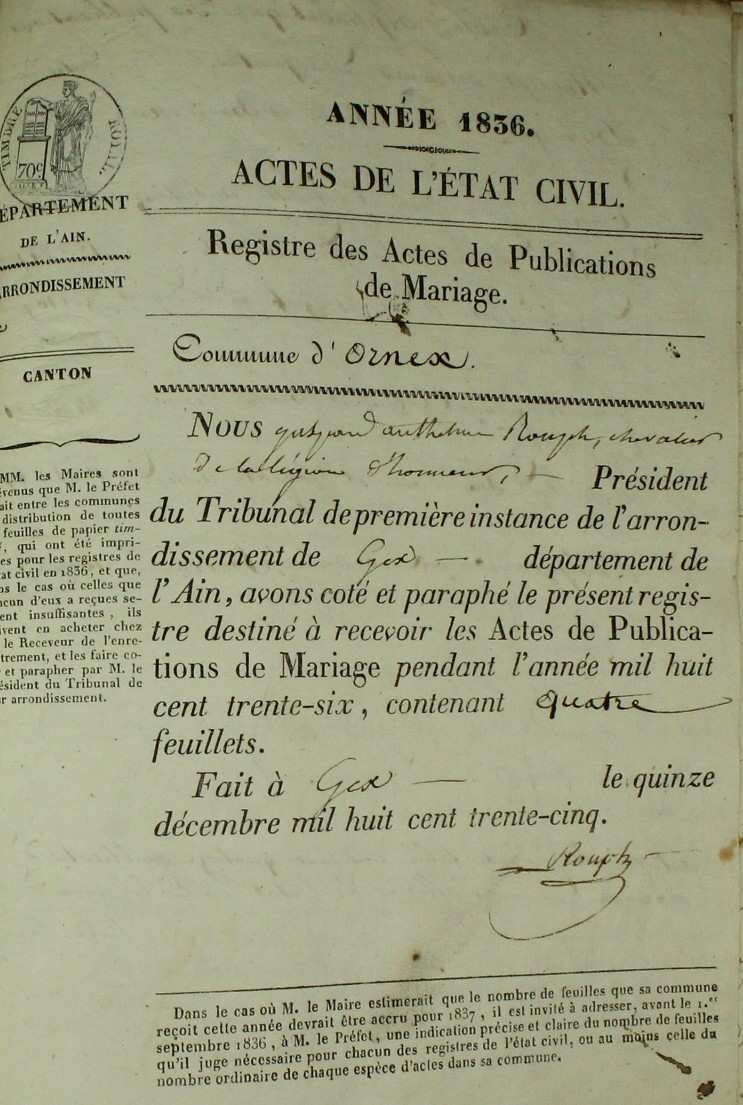 TIMBRE ROYAL
70c
ANNÉE 1836.
ACTES DE L'ÉTAT CIVIL.
Registre des Actes de Publications
de Mariage.
Commune d'Ornex.
ÉPARTEMENT
DE L'AIN.
RRONDISSEMENT
CANTON
MM. les Maires sont
évenus que M. le Préfet
ait entre les communes
distribution de toutes
feuilles de papier tim-
, qui ont été impri-
es pour les registres de
at civil en 1836, et que,
s le cas où celles que
cun d'eux a reçues se-
ent insuffisantes, ils
ivent en acheter chez
le Receveur de l'enre-
trement, et les faire co-
et parapher par M. le
ésident du Tribunal de
r arrondissement.
Nous Rouph, chevalier
de la légion d'honneur, — Président
du Tribunal de première instance de l'arron-
dissement de Gex — département de
l'Ain, avons coté et paraphé le présent regis-
tre destiné à recevoir les Actes de Publica-
tions de Mariage pendant l'année mil huit
cent trente-six, contenant quatre
feuillets.
Fait à Gex — le quinze
décembre mil huit cent trente-cinq.
Rouph
Dans le cas où M. le Maire estimerait que le nombre de feuilles que sa commune
reçoit cette année devrait être accru pour 1837, il est invité à adresser, avant le 1.er
septembre 1836, à M. le Préfet, une indication précise et claire du nombre de feuilles
qu'il juge nécessaire pour chacun des registres de l'état civil, ou au moins celle du
nombre ordinaire de chaque espèce d'actes dans sa commune.